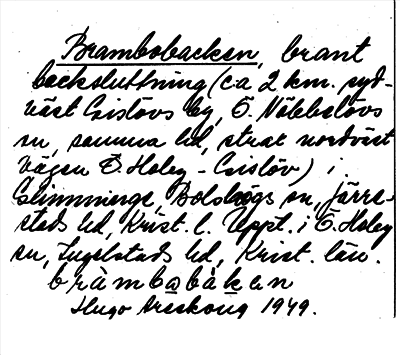 Brambobacken, brant
backsluttning (ca 2 km. syd-
väst Gislövs by, Ö. Nöbbelövs
sn, samma hd, strax nordväst
vägen Ö. Hoby - Gislöv) i
Glimminge, Bolshögs sn, Järre-
stads hd, Krist. l. Uppt. i Ö. Hoby
sn, Ingelstads hd, Krist. län.
bràmbabàken
Hugo Areskoug 1949.